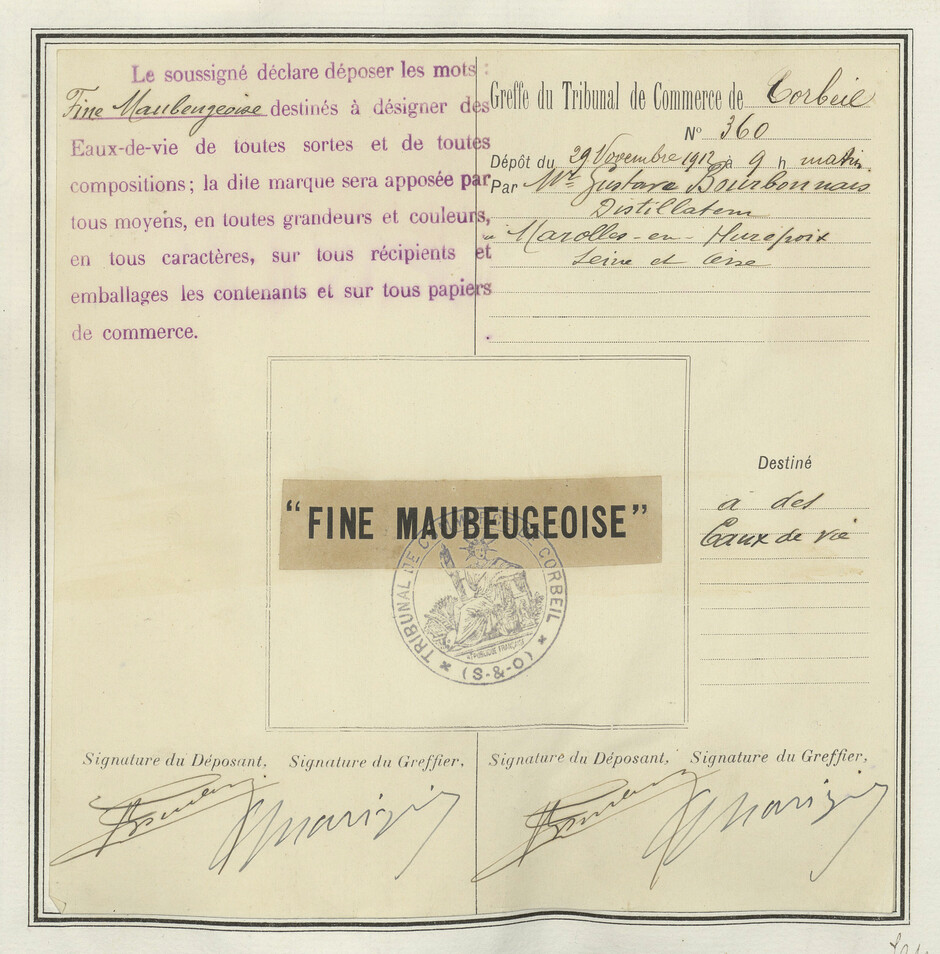 Le soussigné déclare déposer les mots :
Fine Maubeugeoise destinés à désigner des
Eaux-de-vie de toutes sortes et de toutes
compositions ; la dite marque sera apposée par
tous moyens, en toutes grandeurs et couleurs,
en tous caractères, sur tous récipients et
emballages les contenants et sur tous papiers
de commerce.
Greffe du Tribunal de Commerce de Corbeil
N° 360
Dépôt du 29 Novembre 1912 à 9 h matin.
Par Mr Gustave Bourbonnais
Distillateur
à Marolles-en-Hurepoix
Seine et Oise
"FINE MAUBEUGEOISE"
TRIBUNAL DE COMMERCE DE CORBEIL
RÉPUBLIQUE FRANÇAISE
* (S-&-O) *
Destiné
à des
Eaux de vie
Signature du Déposant, Signature du Greffier,
Signature du Déposant, Signature du Greffier,